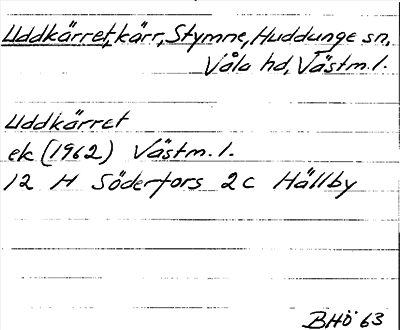 Uddkärret, kärr, Stymne, Huddunge sn,
Våla hd, Västm. l.
Uddkärret
ek (1962) Västm. l.
12 H Söderfors 2c Hällby
BHÖ 63